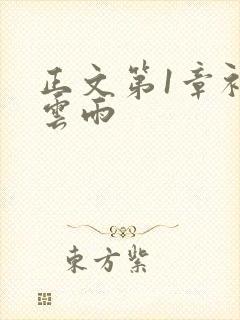 正文第1章初
雲雨
東方紫